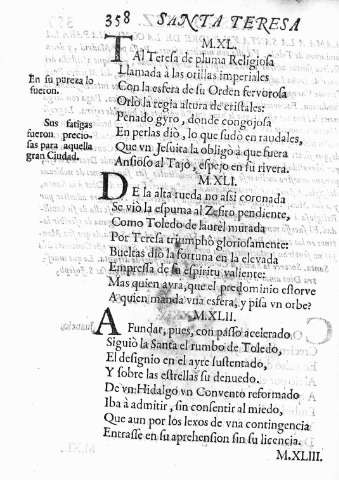 358 SANTA TERESA
M.XL.
TAl Teresa de pluma Religiosa
Llamada à las orillas imperiales
Con la esfera de su Orden fervorosa
Orlò la regia altura de cristales:
Penado gyro, donde congojosa
En perlas diò, lo que sudo en raudales,
Que vn Jesuita la obligò a que fuera
Ansioso al Tajo, espejo en su rivera.
En su pureza lo
fueron.
Sus fatigas
fueron precio-
sas para aquella
gran Ciudad.
M.XLI.
DE la alta rueda no assi coronada
Se viò la espuma al Zefiro pendiente,
Como Toledo de laurel murada
Por Teresa triumphò gloriosamente:
Bueltas diò la fortuna en la elevada
Empressa de su espiritu valiente:
Mas quien avrà, que el predominio estorve
A quien manda vna esfera, y pisa vn orbe?
M.XLII.
A Fundar, pues, con passo acelerado
Siguiò la Santa el rumbo de Toledo,
El designio en el ayre sustentado,
Y sobre las estrellas su denuedo.
De vn Hidalgo vn Convento reformado
Iba à admitir, sin consentir al miedo,
Que aun por los lexos de vna contingencia
Entrasse en su aprehension sin su licencia.
M.XLIII.